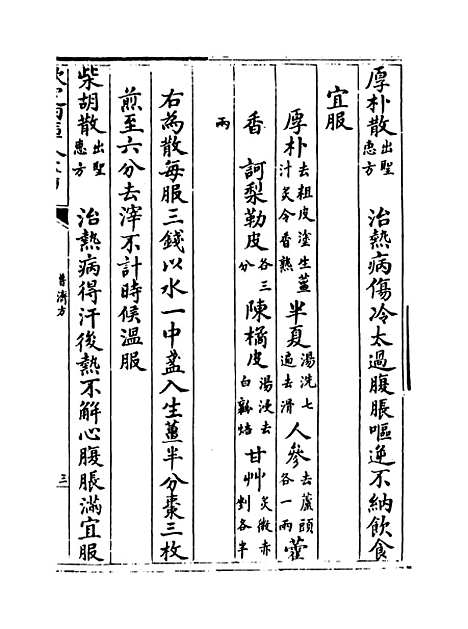 厚朴散出聖惠方　治熱病傷冷太過腹脹嘔逆不納飲食
宜服
厚朴去粗皮塗生薑汁炙令香熟　半夏湯洗七遍去滑　人參去蘆頭各一兩　藿
香　訶梨勒皮各三分　陳橘皮湯浸去白瓤焙　甘艸炙微赤剉各半
兩
右為散每服三錢以水一中盞入生薑半分棗三枚
煎至六分去滓不計時候温服
柴胡散出聖惠方　治熱病得汗後熱不解心腹脹滿宜服
普濟方
三